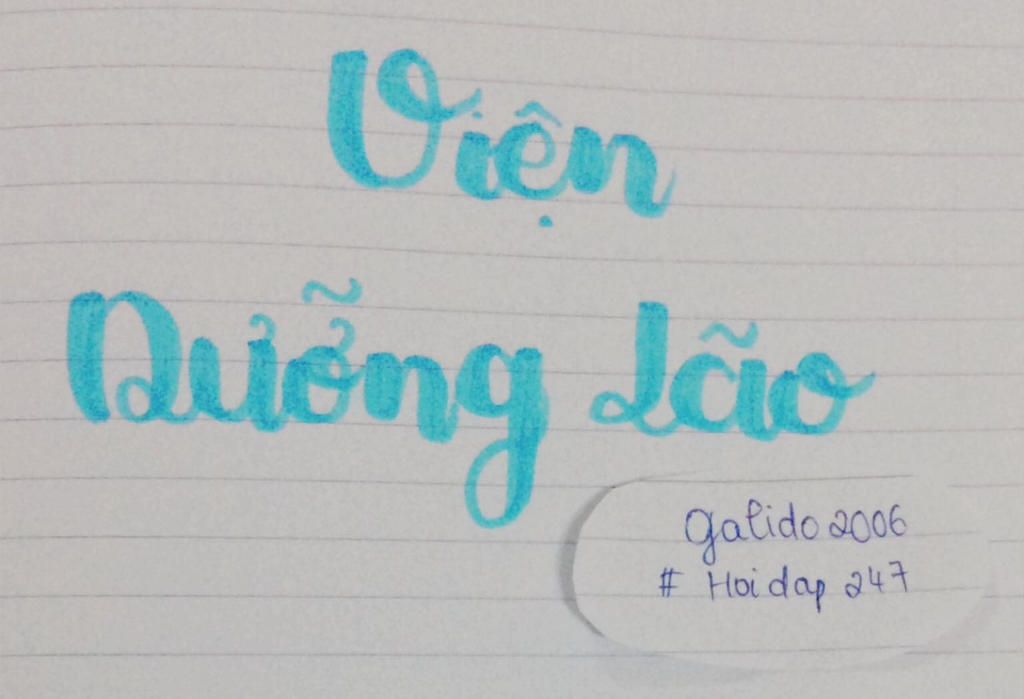 Viện
Dưỡng Lão
galido2006
# Hoidap 247